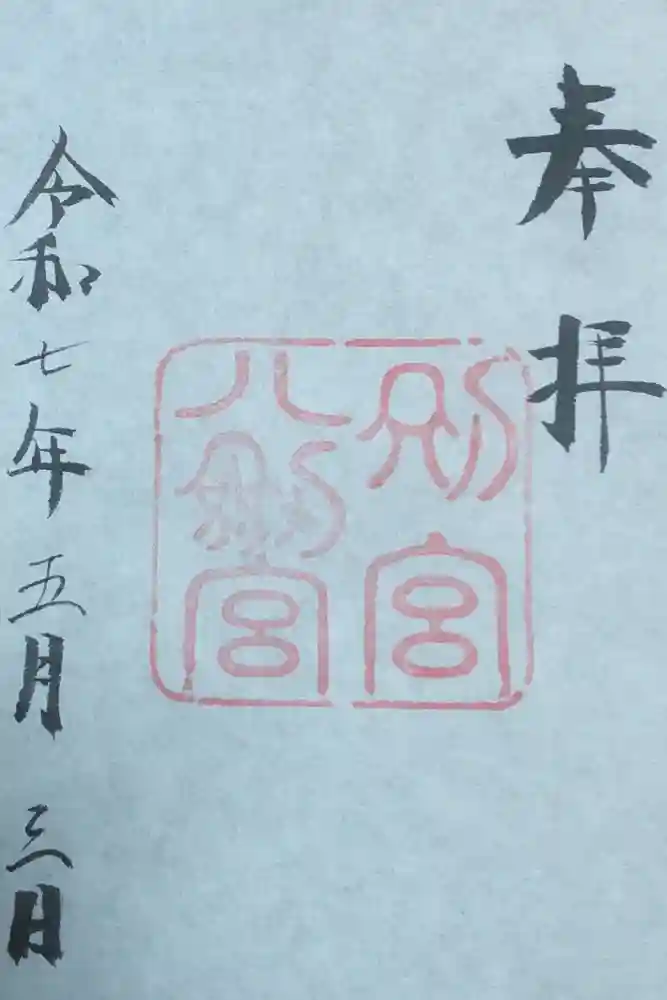 奉拝
別宮
八剣宮
令和七年五月三日